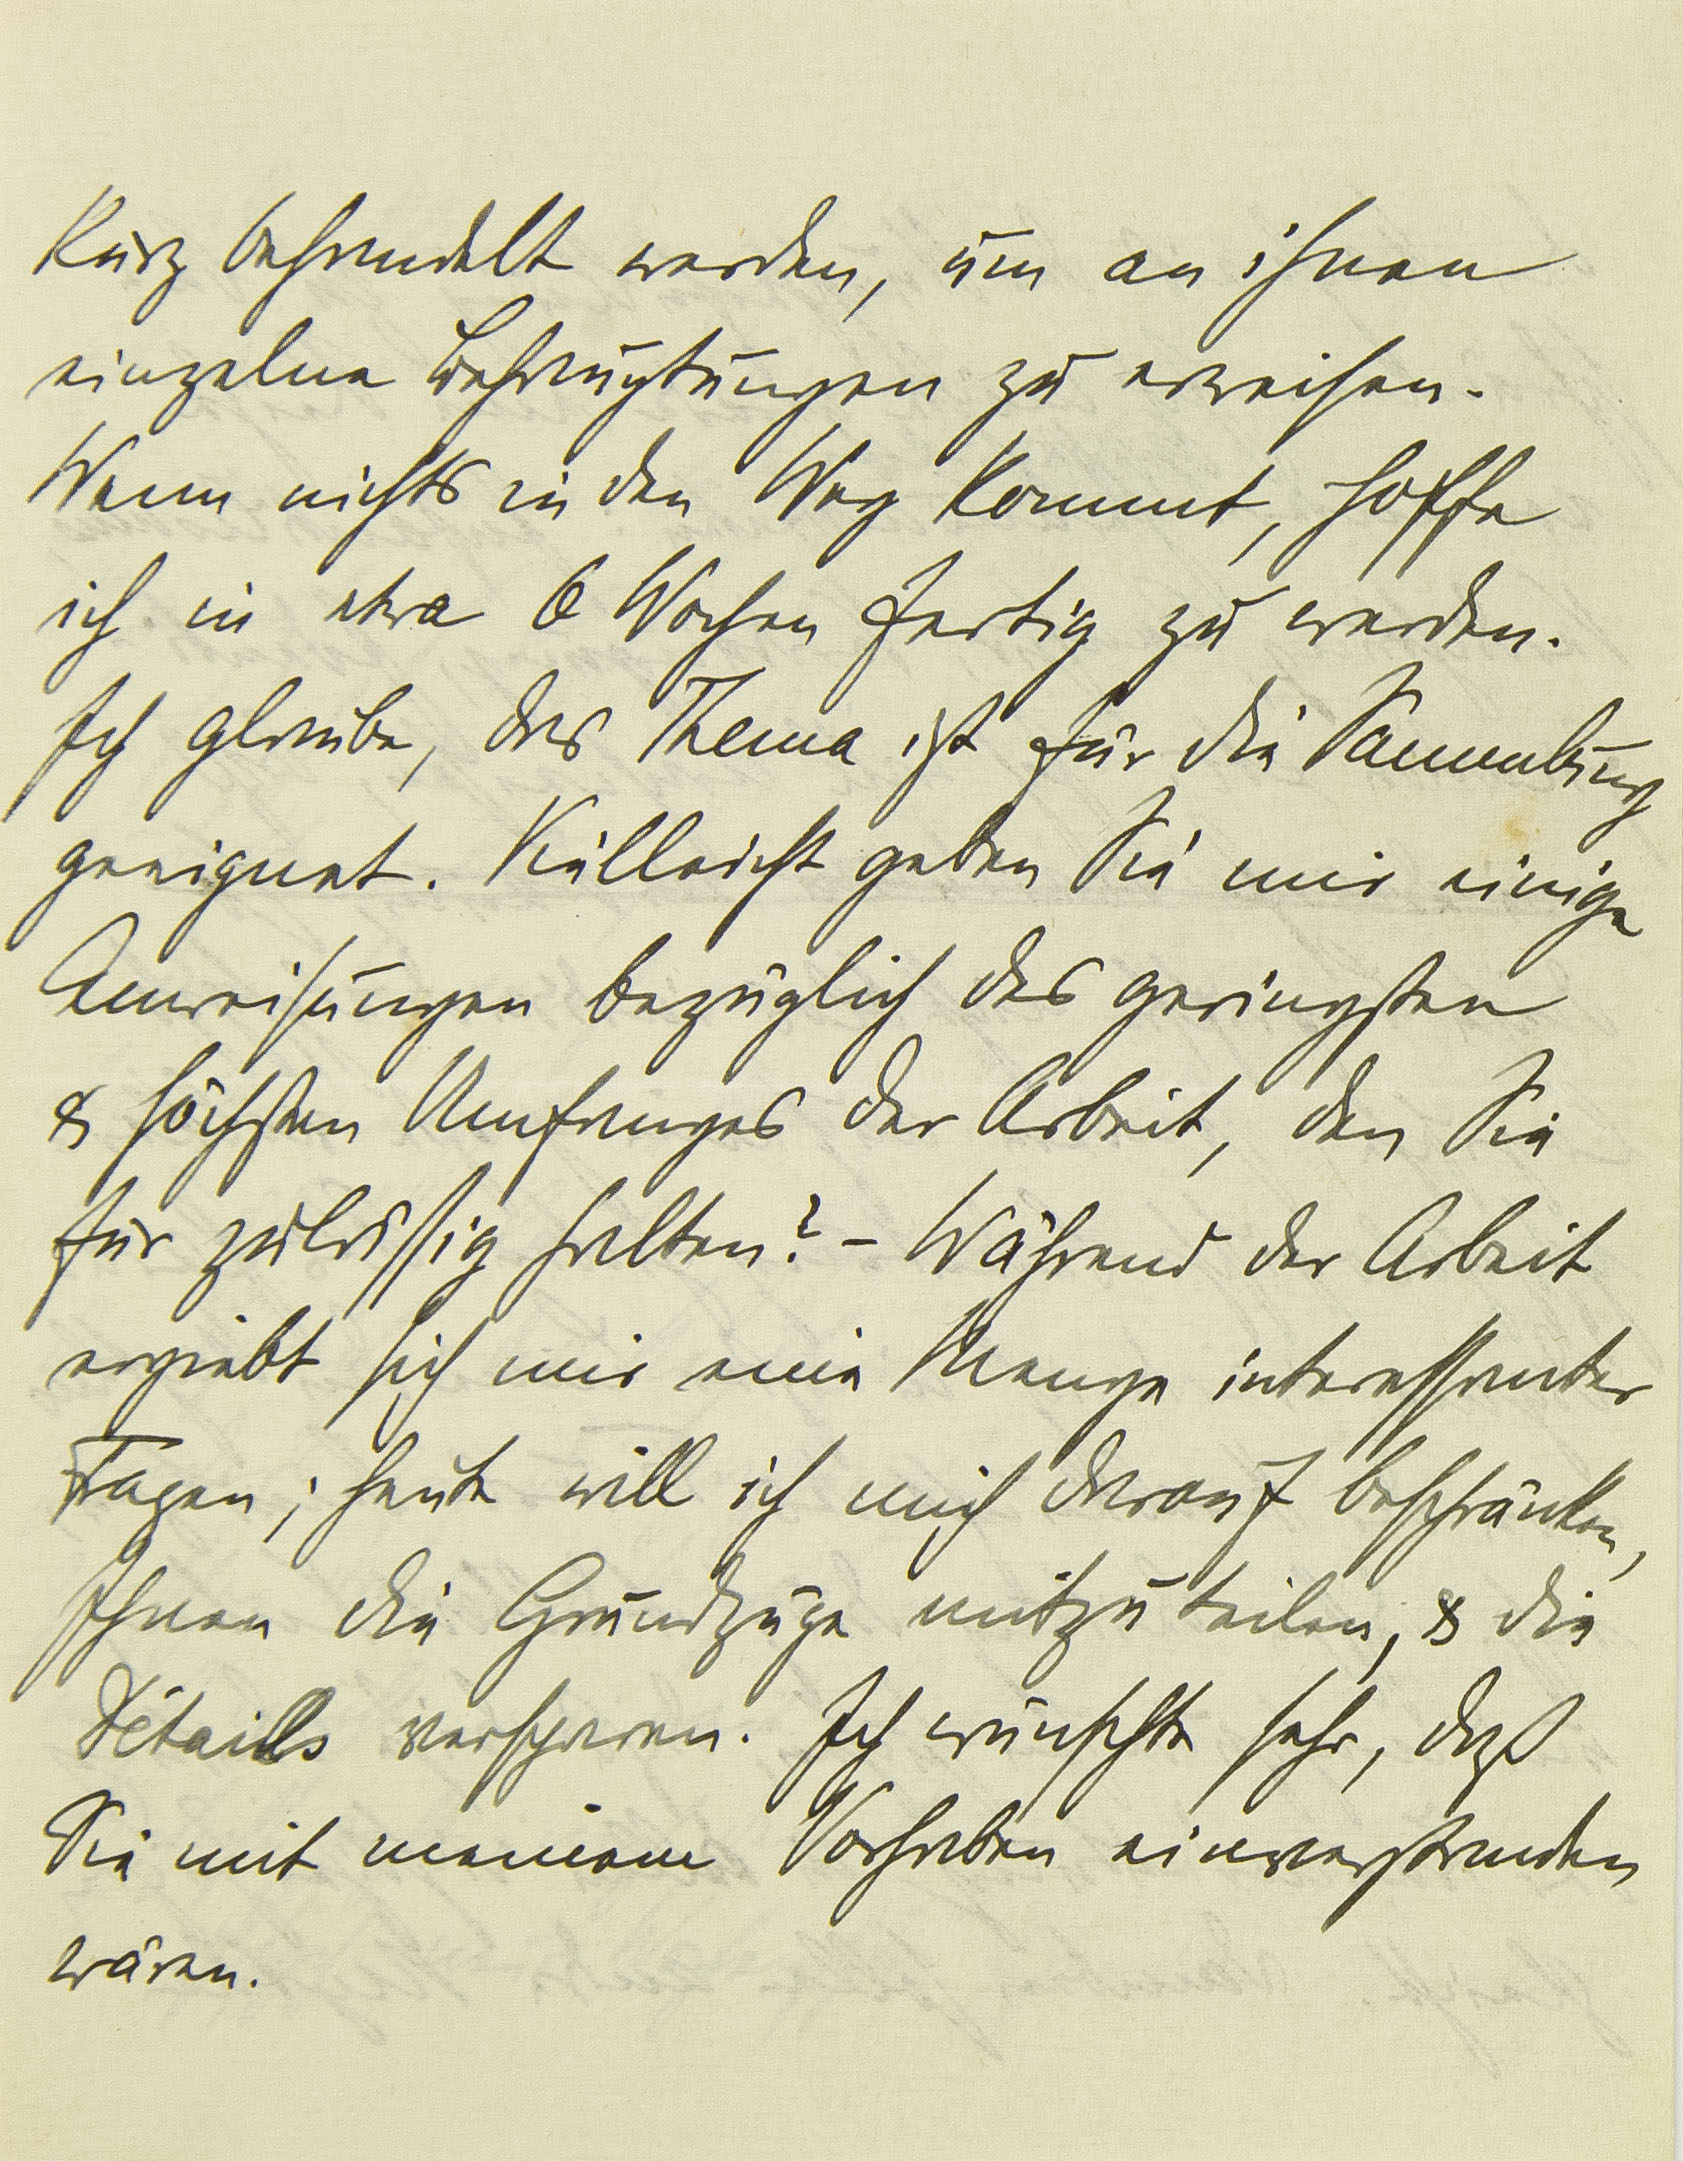 kurz behandelt werden, um an ihnen
einzelne Behauptungen zu erweisen.
Wenn nichts in den Weg kommt, hoffe
ich in etwa 6 Wochen fertig zu werden.
Ich glaube, das Thema ist für die Sammlung
geeignet. Vielleicht geben Sie mir einige
Anweisungen bezüglich des geringsten
& höchsten Umfanges der Arbeit, den Sie
für zulässig halten? – Während der Arbeit
ergiebt sich mir eine Menge interessanter
Fragen; heute will ich mich darauf beschränken,
Ihnen die Grundzüge mitzuteilen, & die
Détails versparen. Ich wünschte sehr, daß
Sie mit meinem Vorhaben einverstanden
wären.